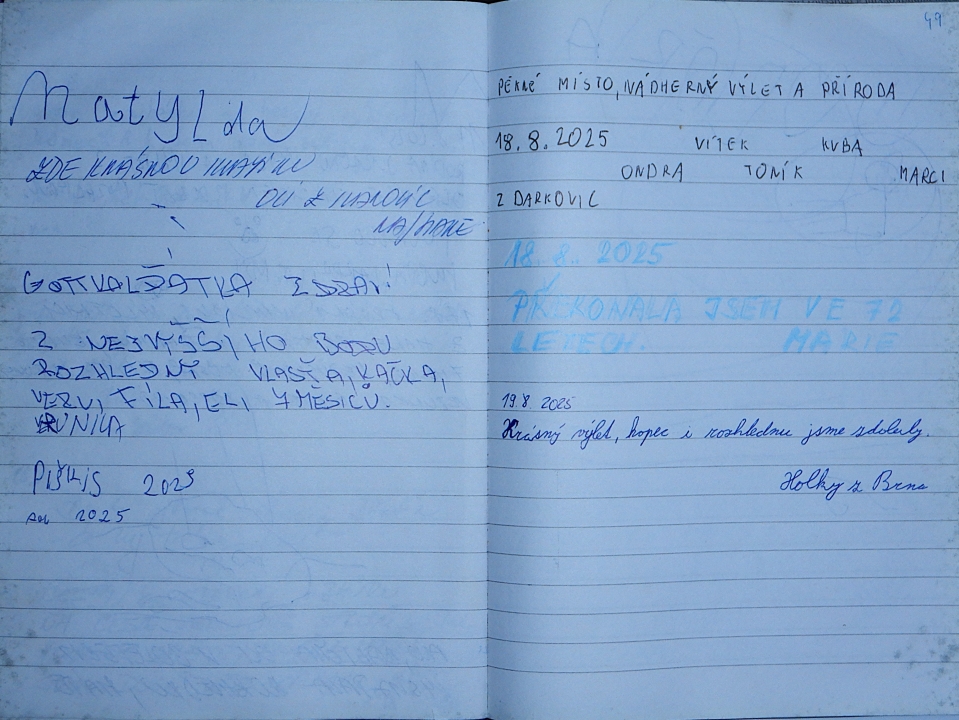 Matylda
ZDE KRÁSNOU
OLI Z
GOTTVALĎÁTKA ZDRAVÍ
Z NEJVYŠŠÍHO BODU
ROZHLEDNY VLASŤA, KAČKA,
FÍLA, ELI, 7 MĚSÍCŮ.
2025
2025
49
PĚKNÉ MÍSTO, NÁDHERNÝ VÝLET A PŘÍRODA
18.8.2025 VÍTEK KUBA
ONDRA TONÍK MARCI
Z DARKOVIC
18.8.2025
PŘEKONALA JSEM VE 72
LETECH. MARIE
19.8 2025
Krásný výlet, kopec i rozhlednu jsme zdolaly.
Holky z Brna